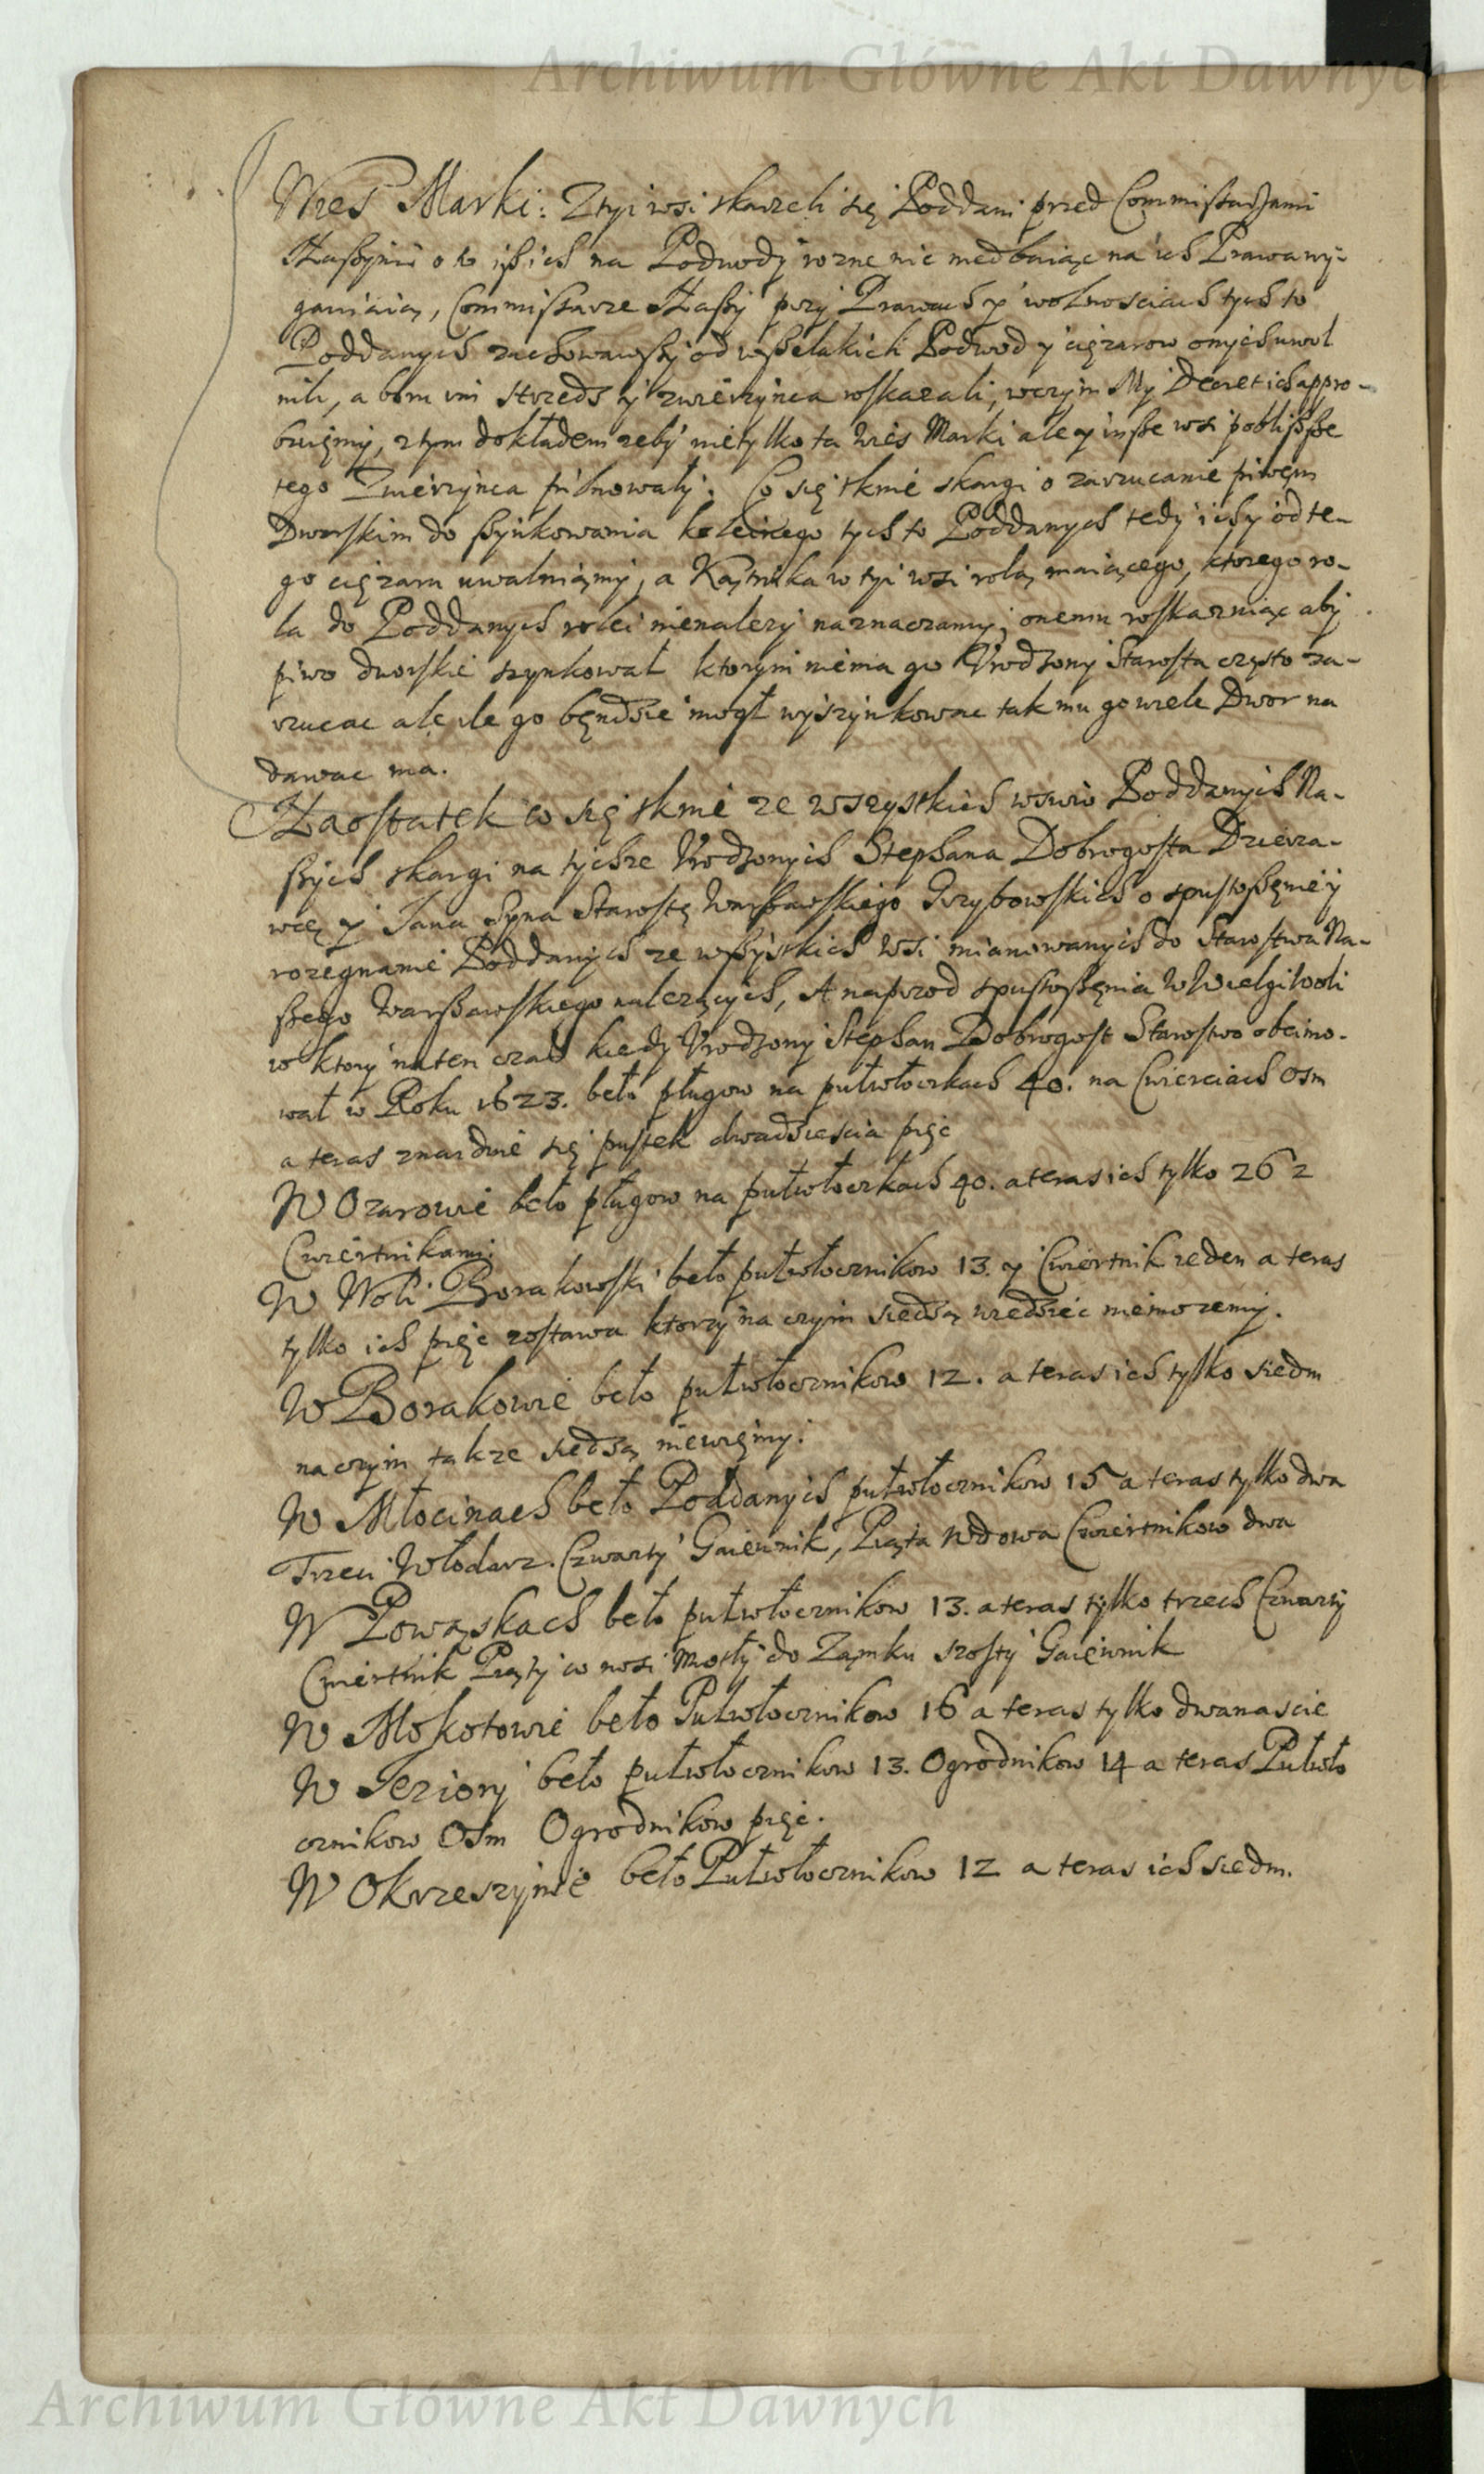 Archiwum Główne Akt Dawnych
Wies Marki: Z tyi wsi skarzeli się Poddani przed Commissarzami
Naßymi o to ißich na Podwody rozne nic niedbaiąc na ich Prawa wy-
ganiaią, Commissarze Naßy przy Prawach y wolnosciach tych to
Poddanych zachowawßy od wßelakich Podwod y cięzarow onych uwol
nili, a bom ini strzedz y zwierzynca wskazali, wczym My Decret ich appro-
buięmy, z tym dokładem zeby nietylko ta Wies Marki ale y inße wsi pobliſße
tego Zwierzynca pilnowały. Co się tknie skargi o zarzucanie piwem
Dworskim do ßynkowania koleinego tych to Poddanych tedy ich y od te-
go cięzaru uwalniamy, a Kątnika w tyi wsi rolą maiącego, ktorego ro-
la do Poddanych rolei nienalezy naznaczamy, onemu roskazuiąc aby
piwo dworskie szynkował ktorym niema go Vrodzony Starosta często za-
rzucac ale ile go będzie mogł wyszynkowac tak mu go wiele Dwor na
dawac ma.
Naostatek co się tknie ze wszystkich wsiow Poddanych Na-
ßych skargi na tychze Vrodzonych Stephana Dobrogosta Dzierza-
wcę y Jana Syna Starostę Warßawskiego Grzybowskich o spustoßęnie y
rozegnanie Poddanych ze wßystkich Wsi mianowanych do Starostwa Na-
ßego Warßawskiego nalezących, A naprzod spustoßęnia W Wielgi Woli
w ktory na ten czas kiedy Vrodzony Stephan Dobrogost Starostwo obeimo-
wał w Roku 1623. beło pługow na pułwłoczkach 40. na Cwierciach osm
a teras znaidzie się pustek dwadziescia pięc
W Ozarowie beło pługow na pułwłoczkach 40. a teras ich tylko 26 z
Cwiertnikami.
W Woli Borakowski beło pułwłocznikow 13. y Cwiertnik ieden a teras
tylko ich pięc zostawa ktorzy na czym siedzą wiedziec niemozemy.
W Borakowie beło pułwłocznikow 12. a teras ich tylko siedm
na czym takze siedzą niewięmy.
W Młocinach beło Poddanych pułwłocznikow 15 a teras tylko dwa
Trzeci Włodarz. Czwarty Gaiewnik, Piąta Wdowa Cwiertnikow dwa
W Powązkach beło pułwłocznikow 13. a teras tylko trzech Czwarty
Cwiertnik Piąty co nosi Mosty do Zamku szosty Gaiewnik
W Mokotowie beło Pułwłocznikow 16 a teras tylko dwanascie
W Jeziory beło pułwłocznikow 13. Ogrodnikow 14 a teras Pułwło
cznikow Osm Ogrodnikow pięc.
W Okrzeszynie beło Pułwłocznikow 12 a teras ich siedm.
Archiwum Główne Akt Dawnych